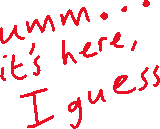 umm...
it's here,
I guess